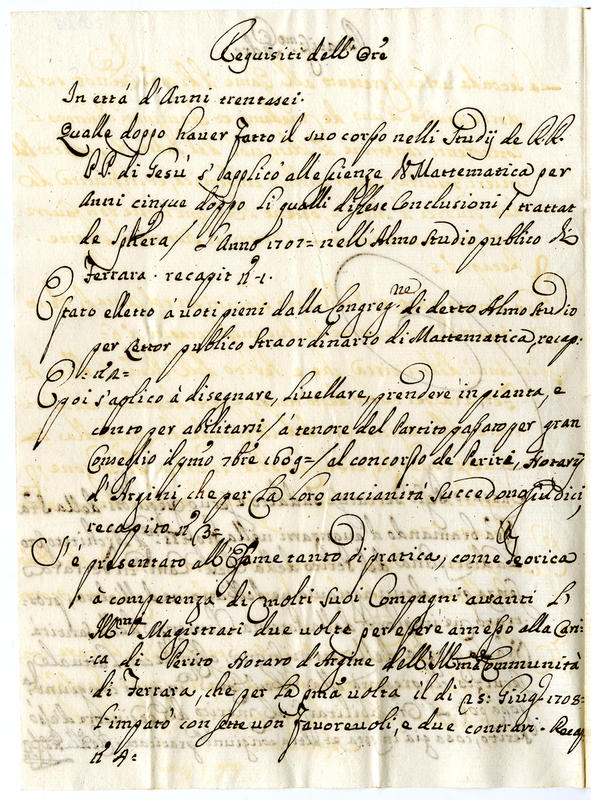 Requisiti dell' Ore
In ettá d'Anni trentasei.
Qualle doppo haver fatto il suo corso nelli Studij de R.R.
P.P. di Gesù s'applicò alle scienze di Mattematica per
Anni cinque doppo li qualli diffese Conclusioni / trattat
de Sphera / l'Anno 1707= nell'Almo Studio publico di
Ferrara. recapit nº 1.
E stato elletto á voti pieni dalla Congreg.ne di detto Almo Studio
per Lettor publico straordinario di Mattematica, recap:
nº 2=
E poi s'aplico à disegnare, Livellare, prendere in pianta, e
conto per abilitarsi / á tenore del Partito passato per gran
Conseglio il pmo 7bre 1609=/ al concorso de Periti, Notarij
d'Argini, che per La Loro ancianitá succedono Giudici,
recapito nº 3=
S'é presentato all'Esame tanto di pratica, come Teorica
à competenza di molti suoi Compagni avanti L'
Ill.mo Magistrati due volte per essere amesso alla Cari=
=ca di Perito Notaro d'Argine dell'Illma Communitá
di Ferrara, che per La pma volta il di 25: Giug.o 1708=
L'impató con sette voti Favorevoli, e due contrari. Recap
nº 4=